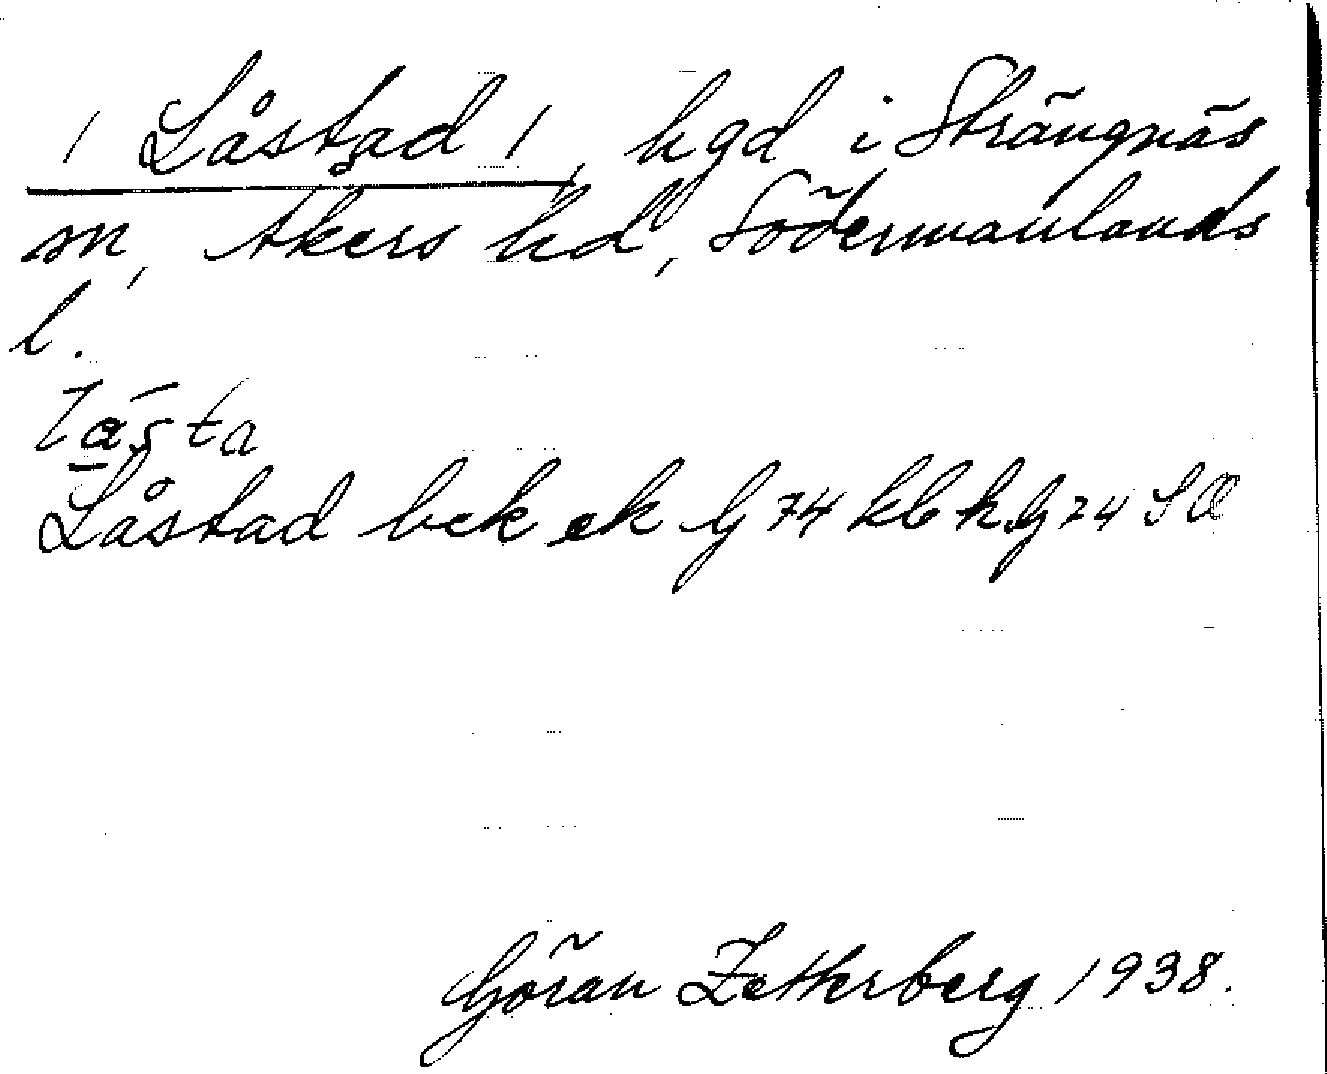 / Låstad /, hgd i Strängnäs
sn, Åkers hd, Södermanlands
l.
lá̱sta
Låstad bek ek G 74 kb h. G 74 SO
Göran Zetterberg 1938.